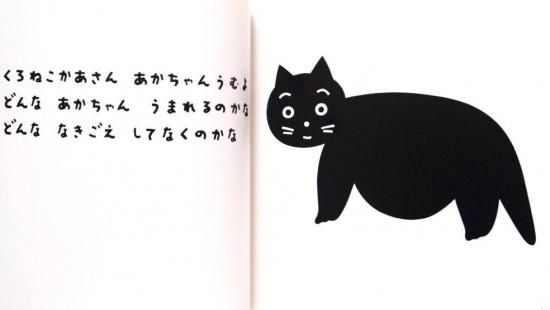 くろねこかあさん あかちゃんうむよ
どんな あかちゃん うまれるのかな
どんな なきごえ してなくのかな